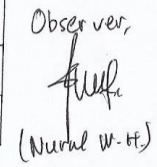 Observer,
(Nurul W.H.)